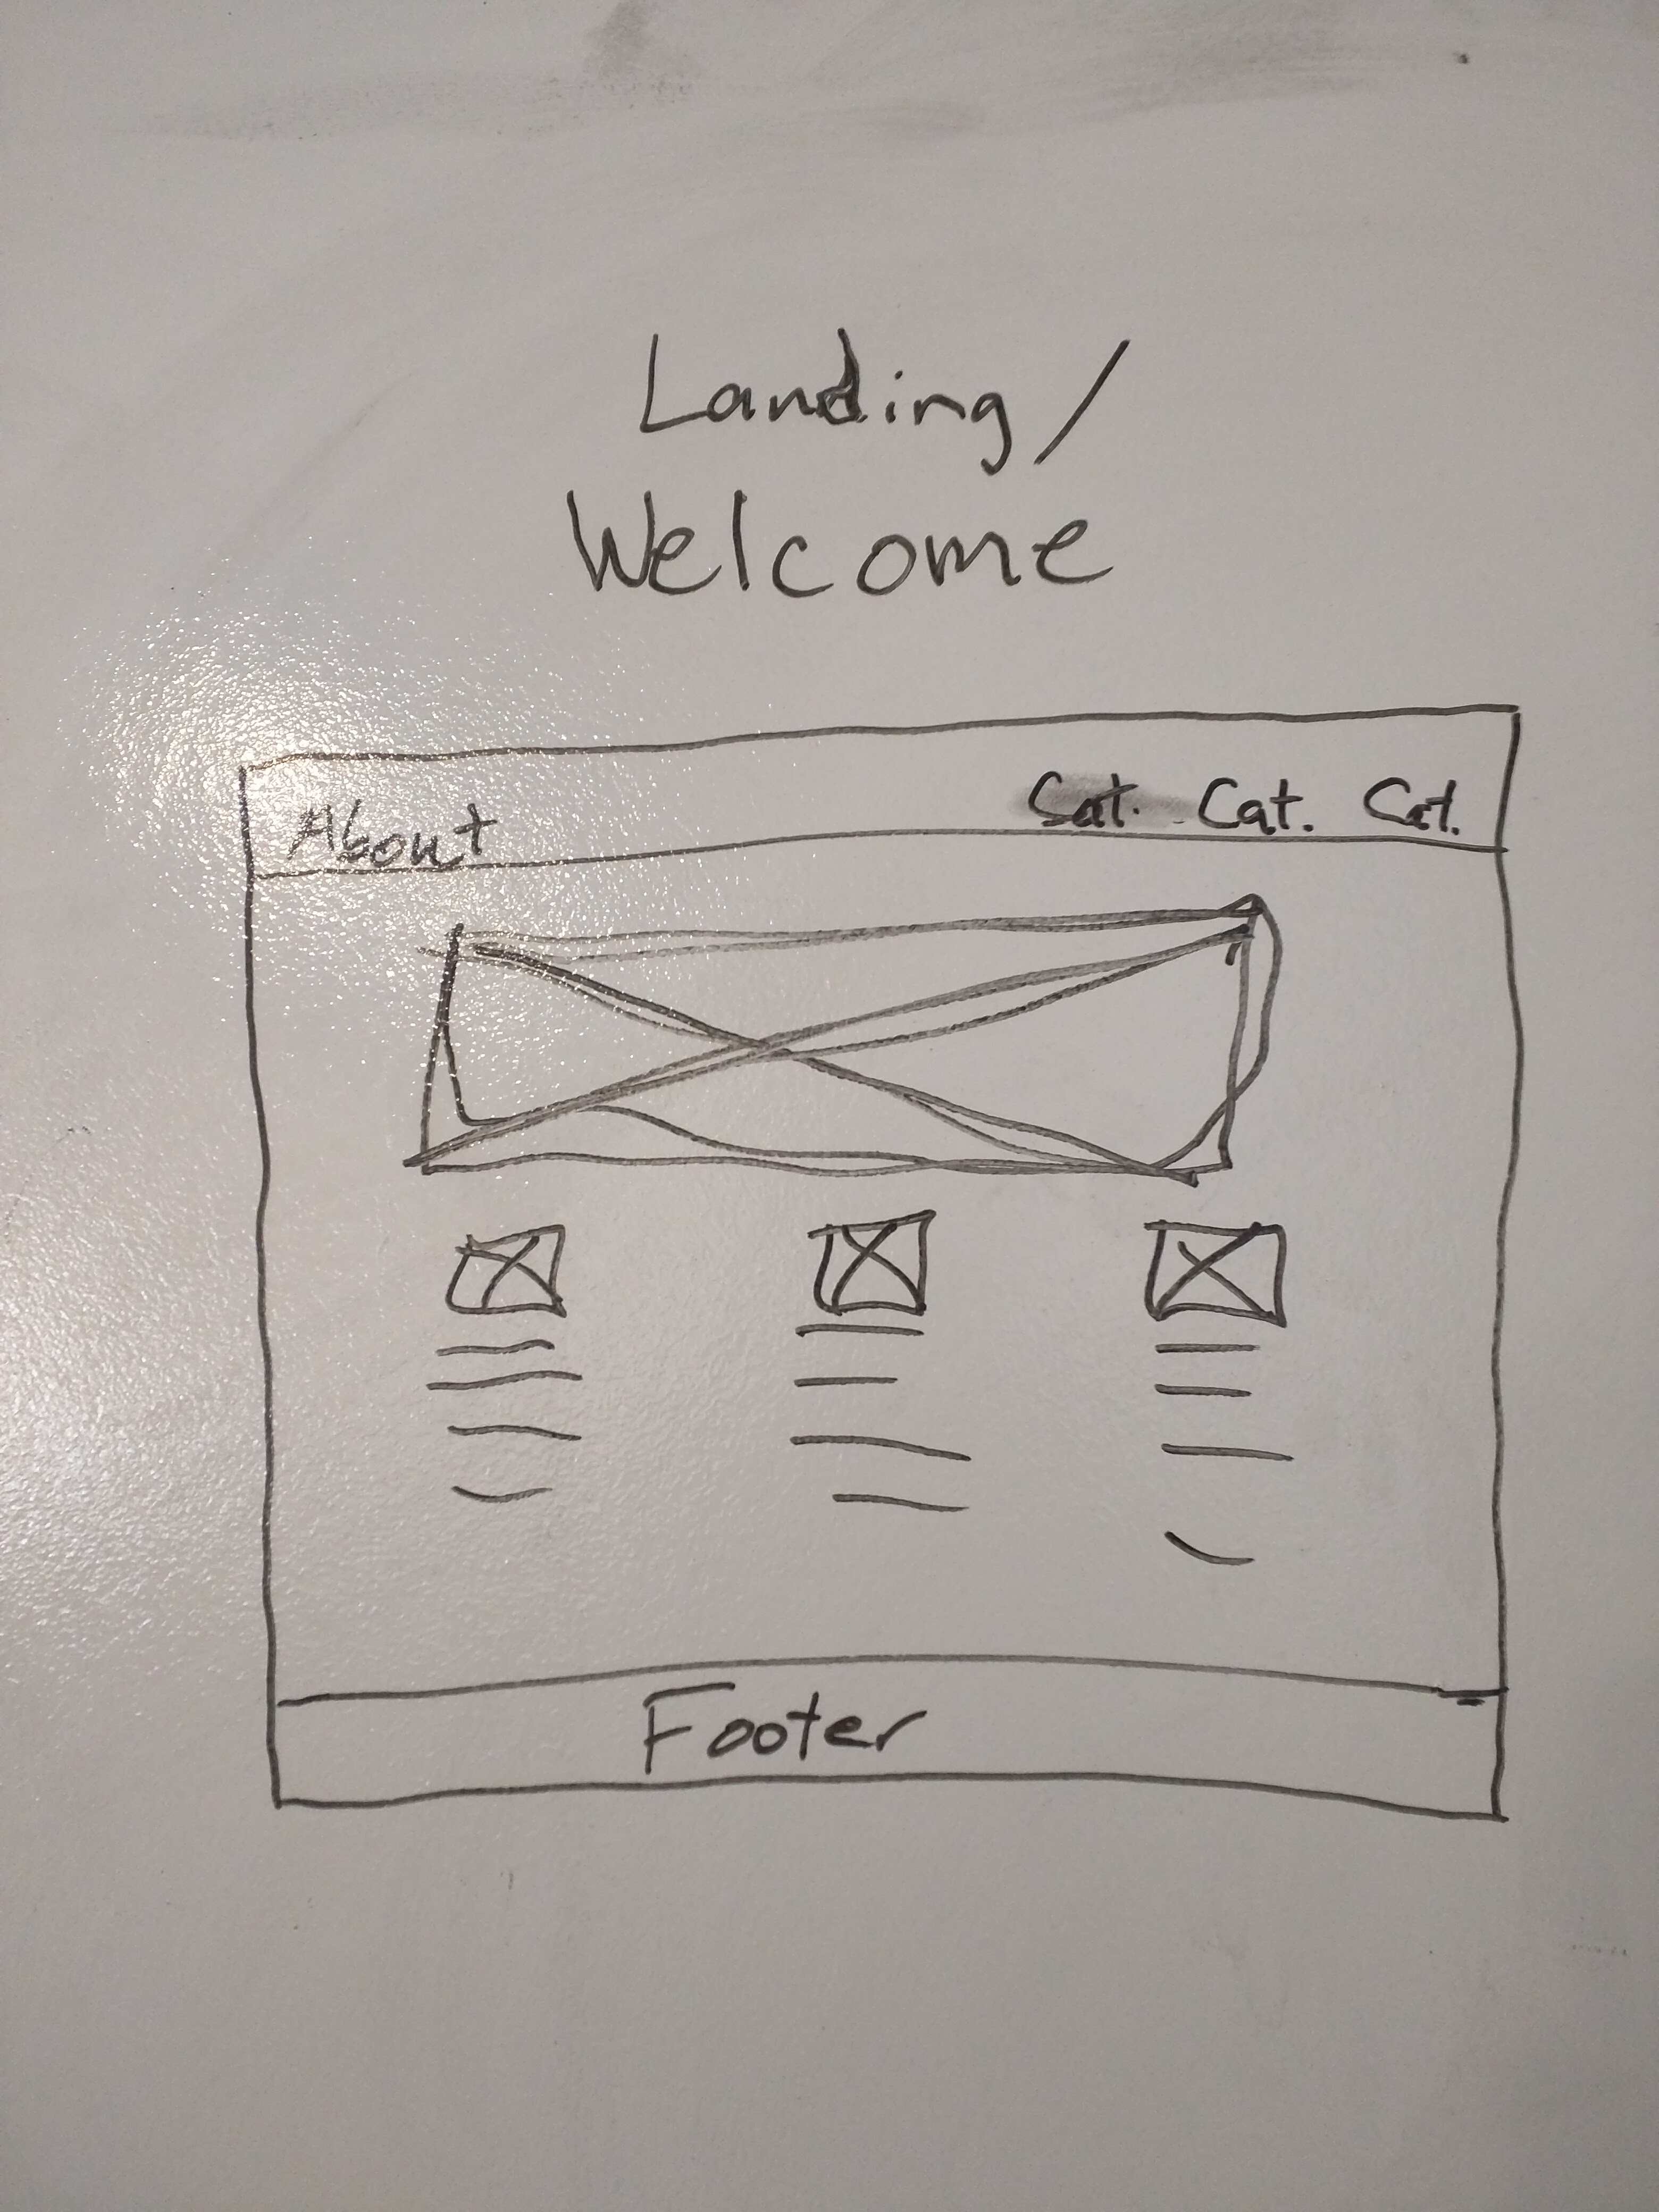 Landing/
Welcome
About Cat. Cat. Cat.
Footer